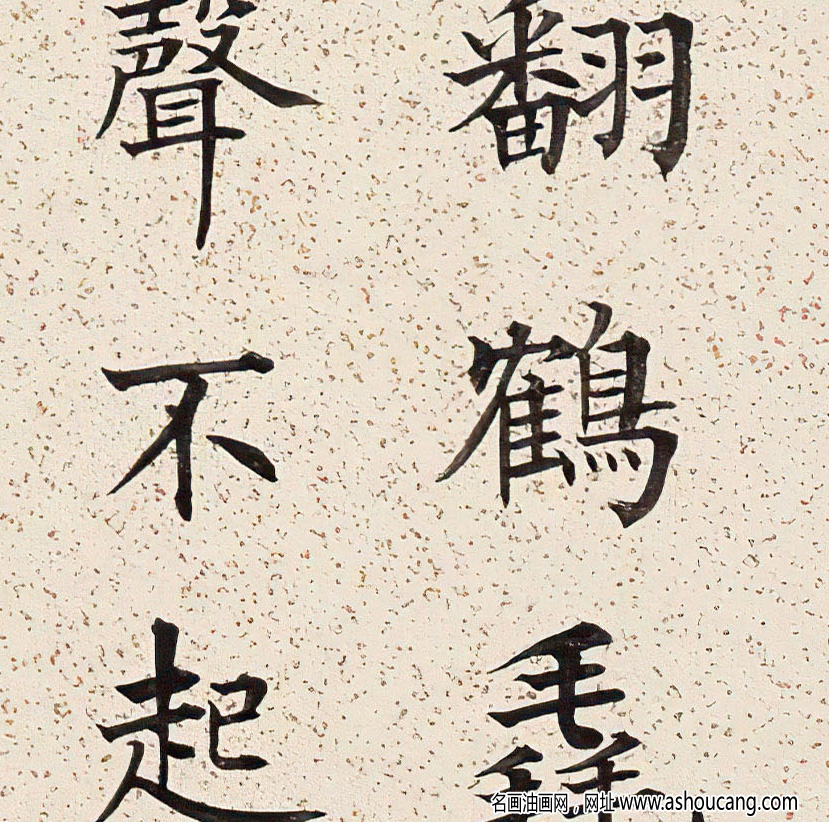 翻鶴毳
聲不起
名画油画网，网址 www.ashoucang.com